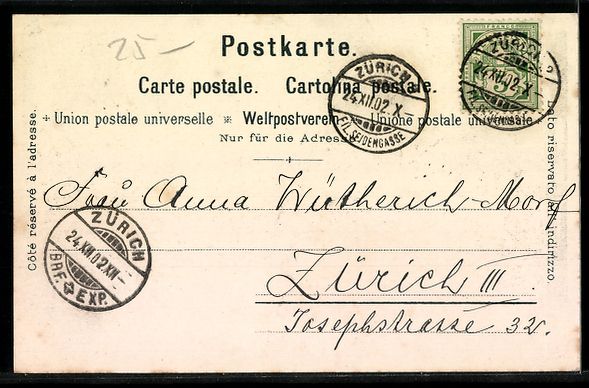 25 —
Postkarte.
Carte postale. Cartolina postale.
Union postale universelle ※ Weltpostverein Unione postale universale
Nur für die Adresse
Côté réservé à l'adresse.
Lato riservato all'indirizzo.
ZÜRICH
24.XII.02.X—
FIL. SEIDENGASSE
ZÜRICH
24.XII.02.X—
FIL. SEIDENGASSE
Frau Anna Wütherich-Morf
Zürich III.
Josephstrasse 32.
ZÜRICH
24.XII.02.XII—
BRF. EXP.